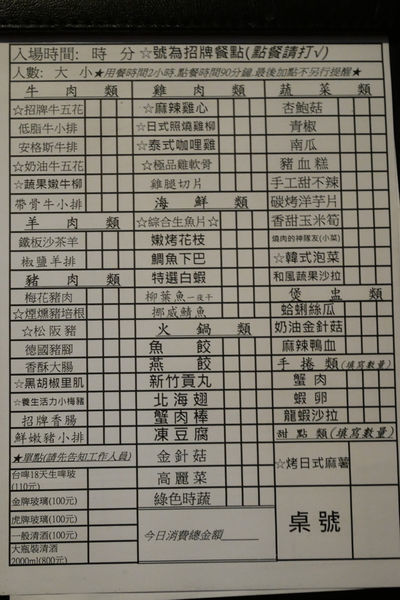 入場時間: 時 分 ☆號為招牌餐點(點餐請打√)
人數: 大 小 ★用餐時間2小時.點餐時間90分鐘.最後加點不另行提醒★
牛 肉 類
☆招牌牛五花
低脂牛小排
安格斯牛排
☆奶油牛五花
☆蔬果嫩牛柳
帶骨牛小排
羊 肉 類
鐵板沙茶羊
椒鹽羊排
豬 肉 類
梅花豬肉
☆煙燻豬培根
☆松阪豬
德國豬腳
香酥大腸
☆黑胡椒里肌
☆養生活力小梅豬
招牌香腸
鮮嫩豬小排
★單點(請先告知工作人員)
台啤18天生啤玻
(110元)
金牌玻璃(100元)
虎牌玻璃(100元)
一般清酒(100元)
大瓶裝清酒
2000ml(800元)
雞 肉 類
☆麻辣雞心
☆日式照燒雞柳
☆泰式咖哩雞
☆極品雞軟骨
雞腿切片
海 鮮 類
☆綜合生魚片☆
嫩烤花枝
鯛魚下巴
特選白蝦
柳葉魚一夜干
挪威鯖魚
火 鍋 類
魚 餃
燕 餃
新竹貢丸
北海翅
蟹肉棒
凍豆腐
金針菇
高麗菜
綠色時蔬
今日消費總金額
蔬 菜 類
杏鮑菇
青椒
南瓜
豬血糕
手工甜不辣
碳烤洋芋片
香甜玉米筍
燒肉的神隊友(小菜)
☆韓式泡菜
和風蔬果沙拉
煲 盅 類
蛤蜊絲瓜
奶油金針菇
麻辣鴨血
手 捲 類(填寫數量)
蟹 肉
蝦 卵
龍蝦沙拉
甜 點 類(填寫數量)
☆烤日式麻薯
桌號